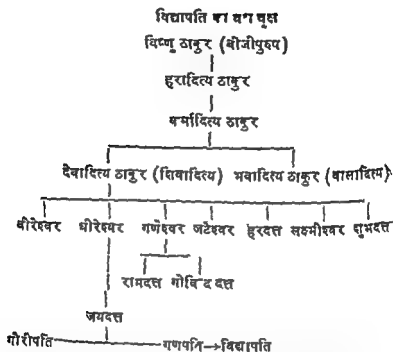 विद्यापति का वंश वृक्ष
विष्णु ठाकुर (बीजीपुरुष)
हरादित्य ठाकुर
कर्मादित्य ठाकुर
देवादित्य ठाकुर (शिवादित्य) भवादित्य ठाकुर (बालादित्य)
वीरेश्वर धीरेश्वर गणेश्वर जटेश्वर हरदत्त लक्ष्मीश्वर शुभदत्त
रामदत्त गोविंददत्त
जयदत्त
गौरीपति गणपति→विद्यापति